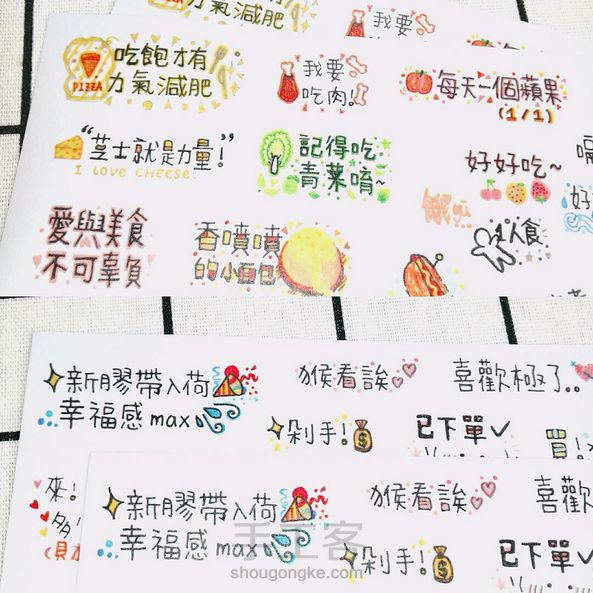 力氣減肥
我要
吃肉。
吃飽才有
力氣減肥
PIZZA
我要
吃肉。
每天一個蘋果
(1/1)
“芝士就是力量!”
I LOVE CHEESE.
記得吃
青菜唷~
好好吃~
愛與美食
不可辜負
香噴噴
的小面包
人食
新膠帶入荷
幸福感 max
猴看誒
喜歡極了..
剁手!
已下單✓
來!
多
新膠帶入荷
幸福感 max
猴看誒
喜歡
剁手!
已下單✓
手工客
shougongke.com